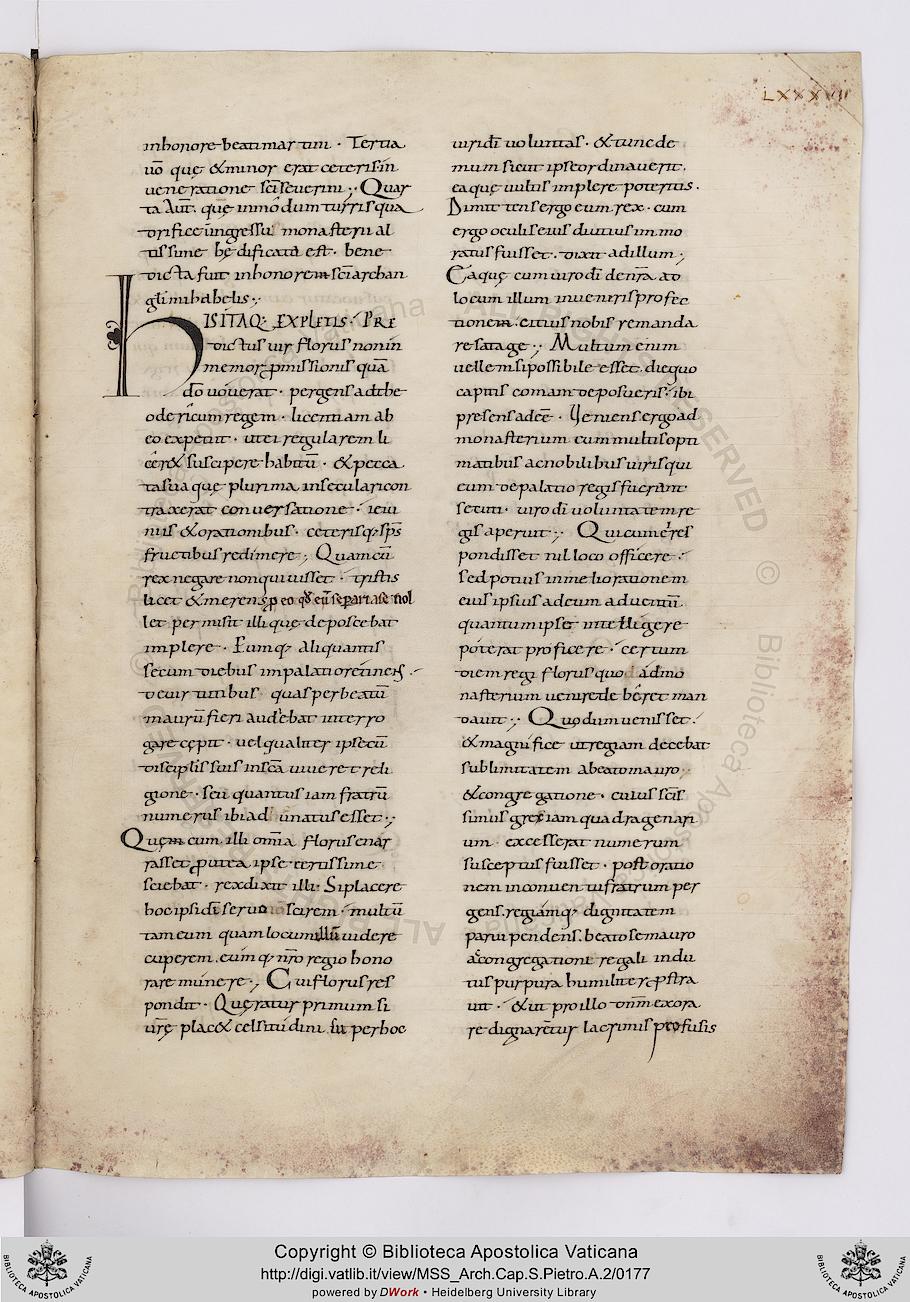 LXXXVII
inhonore beati martini · Tertia
uō quę & minor erat ceteris in
ueneratione sc̄i seuerini ;· Quar
ta Aut̄ · quę in mōdum turris qua
dri fice in̄gressu monasterii al
tissime hędificata est · bene
dicta fuit inhonorem sc̄i archan
geli mihahelis ;·
HIS ITAQ; EXPLETIS · PRE
dictus uir florus non in
memor pmissionis quā
dō uouerat · pergens ad the
odericum regem · licentiam ab
eo expetiit · utei regularem li
cēr& suscipere habitū · & pecca
ta sua quę plurima in seculari con
traxerat conuersatione · ieiu
niis & orationibus · ceterisq; sp̄s
fructibus redimere ; Quam cū
rex negare non quiuisset · tristis
licet & merens p eo qd eū separari a se nol
let permisit illi quę deposcebat
implere · Eumq; aliquantis
secum diebus in palatio retinens ·
de uirtutibus quas per beatū
maurū fieri audebat interro
gare cępit · uel qualiter ipse cū
discipl̄is suis in sc̄a uiueret reli
gione · seu quantus iam fratrū
numerus ibi adunatus esset ;·
Quem cum illi om̄ia florus enar
rasset prout ea ipse certissime
sciebat · rex dixit illi · Si placere
hoc ipsi dī seruo scirem · multū
tam eum quam locum illū uidere
cuperem · eumq; nr̄o regio hono
rare munere ·, Cui florus res
pondit · Quęratur primum si
ur̄ę plac& celsitudini · sit per hoc
uiri dī uoluntas · & tunc de
mum sicut ipse ordinauerit ·
ea quę uultis implere poteritis ·
Dimittens ergo eum rex · cum
ergo oculis eius diutius immo
ratus fuisset · dixit ad illum ;
Ea quę cum uiro dī de nr̄a ad
locum illum inueneris profec
tione · citius nobis remanda
re satage ;· Multum enim
uellem si possibile esset · die quo
capitis comam deposueris · ibi
presens adeē · Veniens ergo ad
monasterium cum multis opti
matibus ac nobilibus uiris qui
cum de palatio regis fuerant
secuti · uiro dī uoluntatem re
gis aperuit ;· Qui cum ei res
pondisset nil loco officere ·
sed potius in meliorationem
eius ipsius ad eum aduentū
quantum ipse intelligere
poterat proficere · certum
diem regi florus quo ad mo
nasterium uenire deberet man
dauit ;· Quo dum uenisset ·
& magnifice ut regiam decebat
sublimitatem a beato mauro ·
& congregatione · cuius sc̄is
simus grex iam quadragenari
um excesserat numerum
susceptus fuisset · post oratio
nem in conuentu fratrum per
gens · regiamq; dignitatem
parui pendens · beato se mauro
ac congregatione regali indu
tus purpura humiliter pstra
uit · & ut pro illo dnm exora
re dignaretur lacrimis profusis
Copyright © Biblioteca Apostolica Vaticana
http://digi.vatlib.it/view/MSS_Arch.Cap.S.Pietro.A.2/0177
powered by DWork • Heidelberg University Library